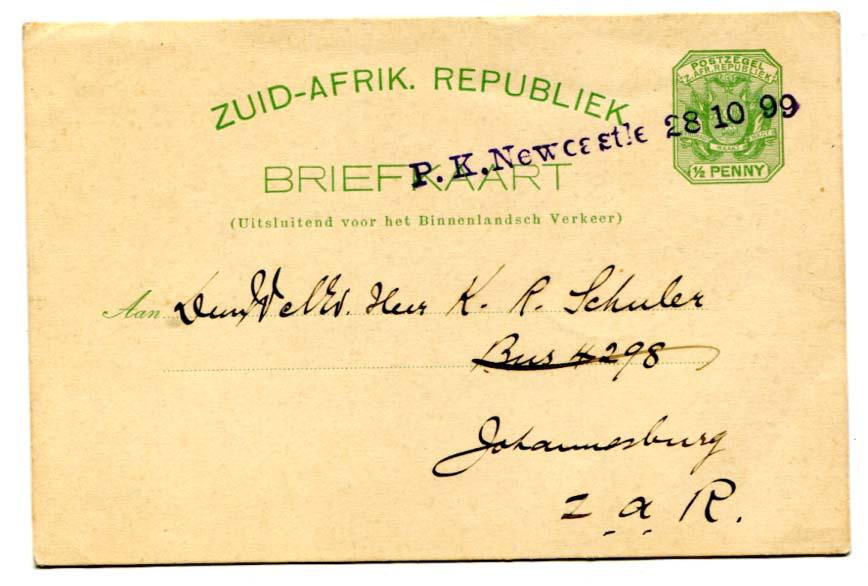 POSTZEGEL
Z. AFR. REPUBLIEK
½ PENNY
ZUID-AFRIK. REPUBLIEK
P.K. Newcastle 28 10 99
BRIEFKAART
(Uitsluitend voor het Binnenlandsch Verkeer)
Aan Heer K. R. Schuler
Bus 4298
Johannesburg
Z. A. R.